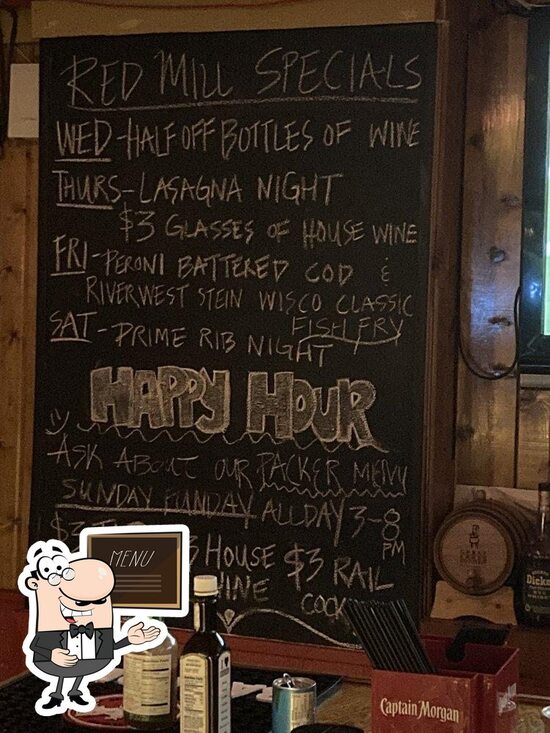 RED MILL SPECIALS
WED-HALF OFF BOTTLES OF WINE
THURS-LASAGNA NIGHT
$3 GLASSES OF HOUSE WINE
FRI-PERONI BATTERED COD &
RIVERWEST STEIN WISCO CLASSIC
FISH FRY
SAT-PRIME RIB NIGHT
HAPPY HOUR
ASK ABOUT OUR PACKER MENU
SUNDAY FUNDAY ALL DAY 3-8
PM
HOUSE $3 RAIL
WINE
MENU
Captain Morgan